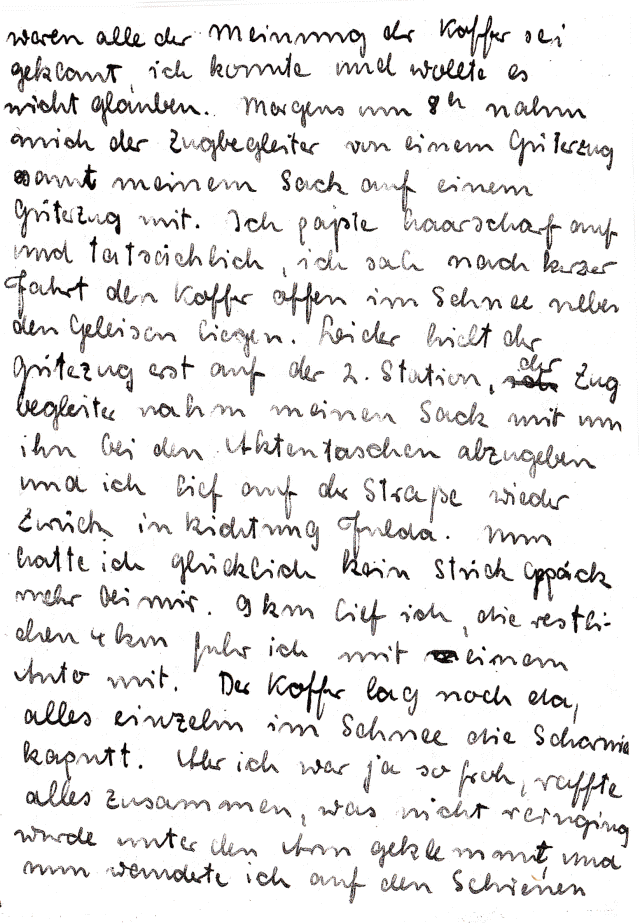 waren alle der Meinung der Koffer sei
geklaut, ich konnte und wollte es
nicht glauben. Morgens um 8h nahm
mich der Zugbegleiter von einem Güterzug
samt meinem Sack auf einem
Güterzug mit. Ich paßte haarscharf auf
und tatsächlich, ich sah nach kurzer
Fahrt den Koffer offen im Schnee neben
den Geleisen liegen. Leider hielt der
Gütezug erst auf der 2. Station, der Zug
begleiter nahm meinen Sack mit um
ihn bei den Aktentaschen abzugeben
und ich lief auf der Straße wieder
zurück in Richtung Fulda. Nun
hatte ich glücklich kein Stück Gepäck
mehr bei mir. 9 km lief ich, die restli-
chen 4 km fuhr ich mit einem
Auto mit. Der Koffer lag noch da,
alles einzeln im Schnee die Scharnie
kaputt. Aber ich war ja so froh, raffte
alles zusammen, was nicht reinging
wurde unter den Arm geklemmt, und
nun wandete ich auf den Schienen